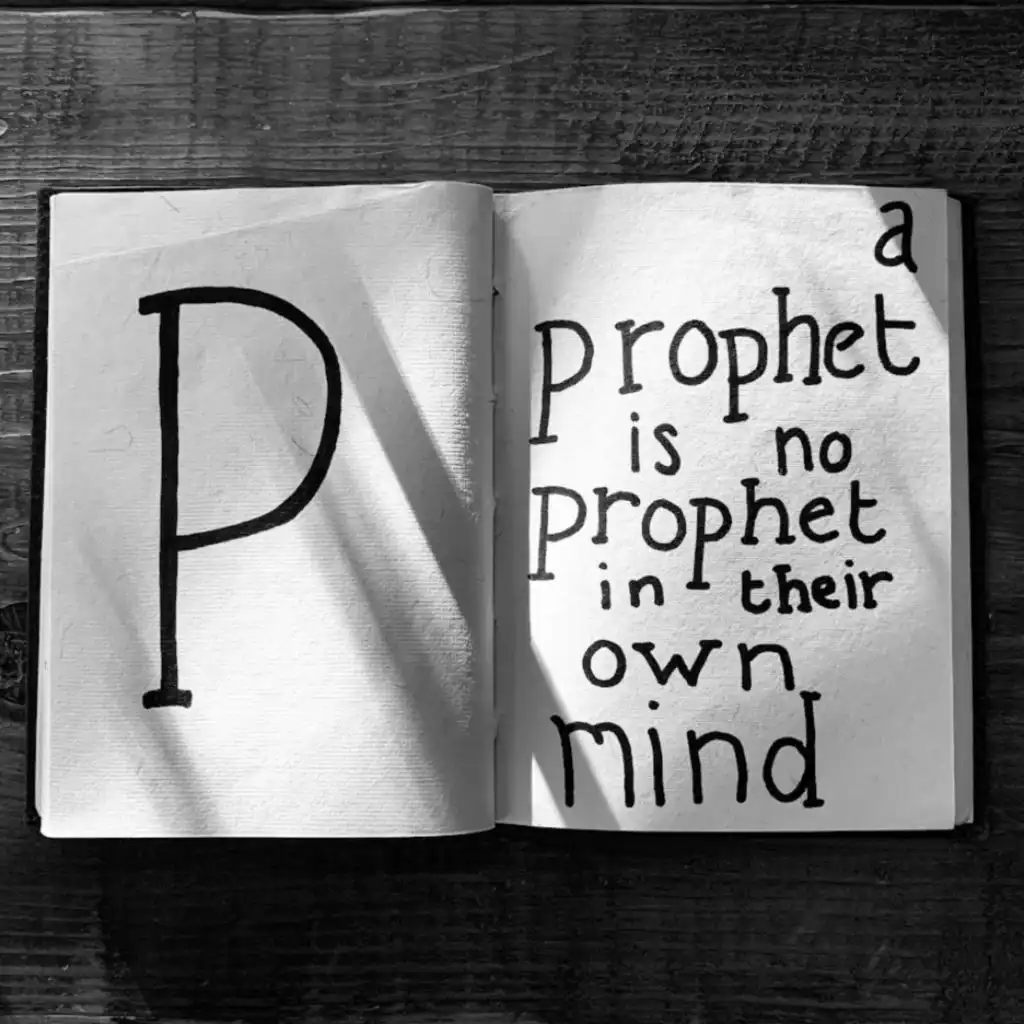 P
a
prophet
is no
prophet
in their
own
mind